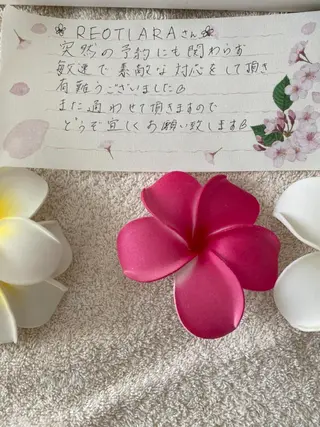 REOTIARAさん
突然の予約にも関わらず
敏速で素敵な対応をして頂き
有難うございました
また通わせて頂きますので
どうぞ宜しくお願い致します